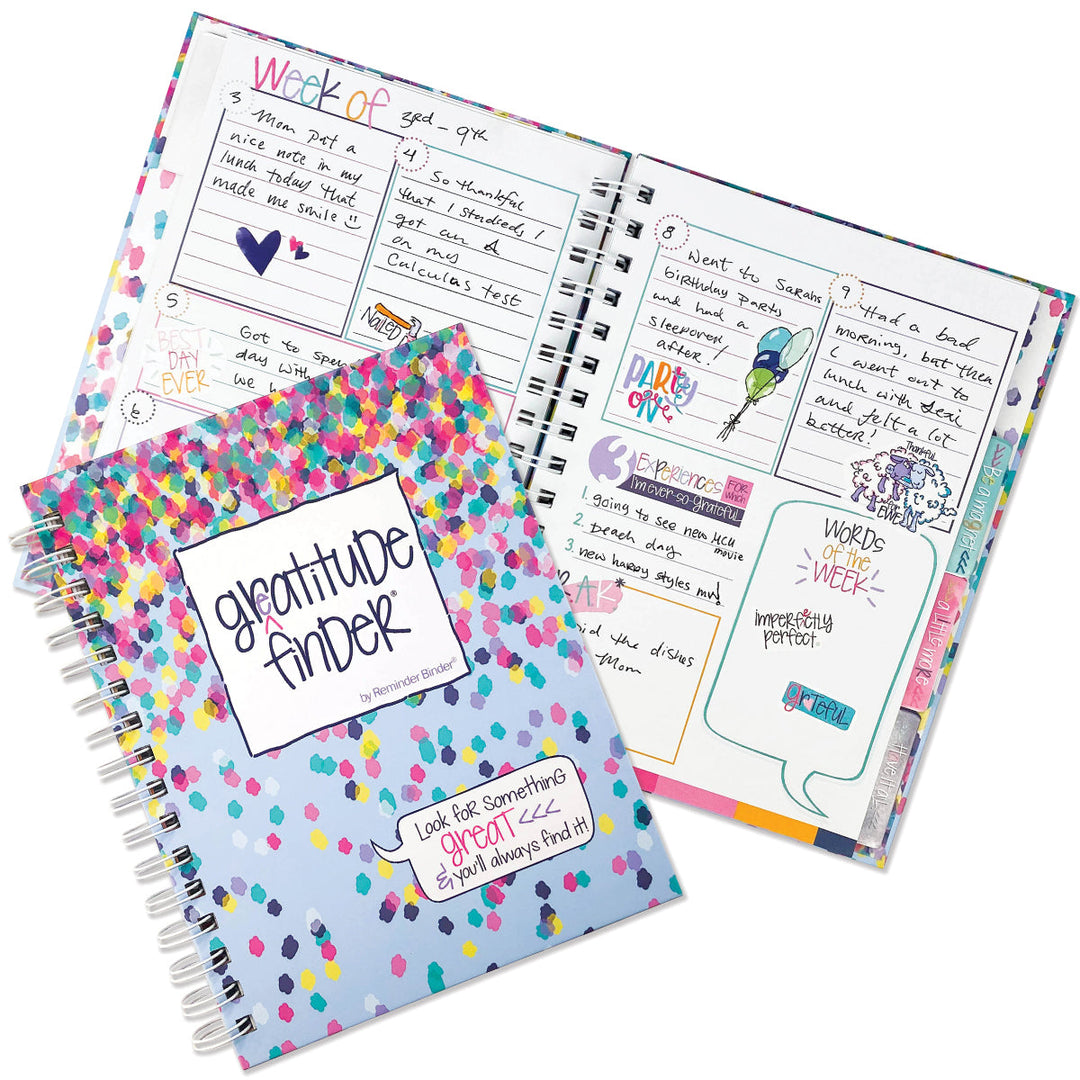 Week of 3rd - 9th
3
Mom put a
nice note in my
lunch today that
made me smile
4
So thankful
that I studied!
got an A
on my
Calculas test
NAILED
5
BEST
DAY
EVER
Got to spe
day with
we h
6
8
Went to Sarahs
birthday party
and had a
sleepover
after!
PARTY
ON
9
Had a bad
morning, but then
I went out to
lunch with Lexi
and felt a lot
better!
Thankful
EWE
3 EXPERIENCES FOR which
I'm ever-so-grateful
1. going to see new MCU
movie
2. beach day
3. new harry styles mv!
AK*
id the dishes
Mom
WORDS
of the
WEEK
imperfectly
perfect.
grateful
Be a magnet <<<
a little more
Have it all
greatitude
finder®
by Reminder Binder®
Look for something
great <<<
& you'll always find it!